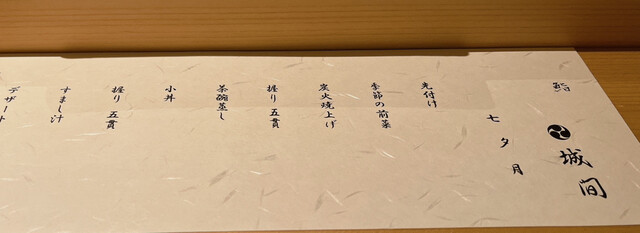 鮨 城間
七夕月
先付け
季節の前菜
炭火焼上げ
握り 五貫
茶碗蒸し
小丼
握り 五貫
すまし汁
デザート